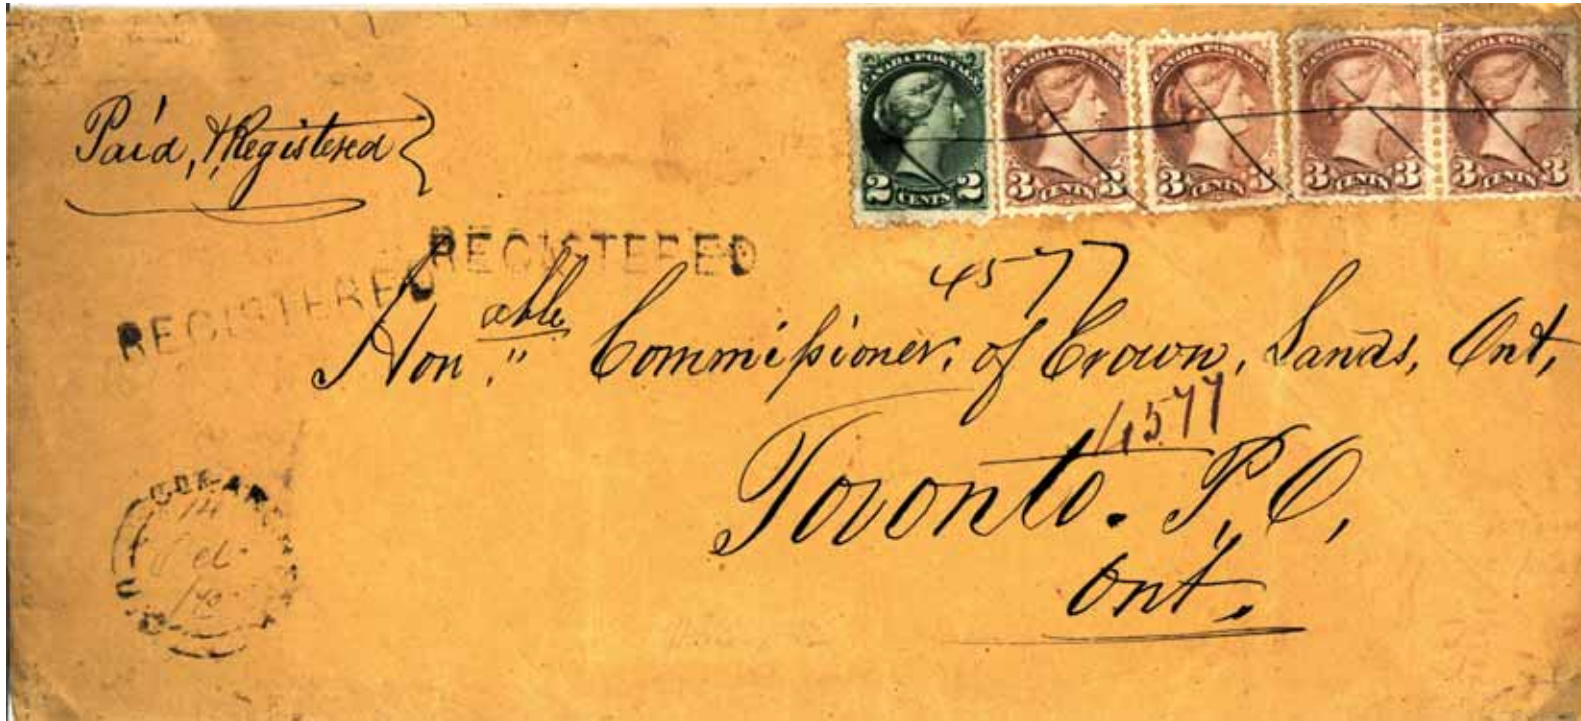 Paid, & Registered
CANADA POSTAGE
2 CENTS 2
CANADA POSTAGE
3 CENTS 3
CANADA POSTAGE
3 CENTS 3
CANADA POSTAGE
3 CENTS 3
CANADA POSTAGE
3 CENTS 3
REGISTERED
REGISTERED
4577
Honable Commissioner, of Crown, Lands, Ont,
4577
Toronto. P, O,
Ont,
14
U.C